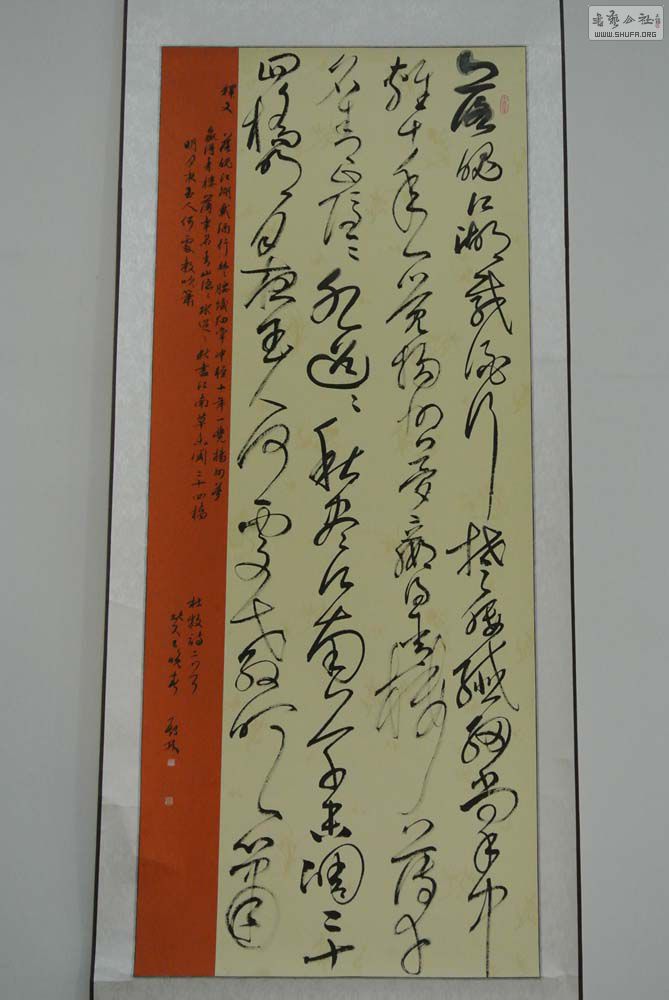 書藝公社
WWW.SHUFA.ORG
落魄江湖載酒行楚腰纖細掌中
輕十年一覺揚州夢贏得青樓薄幸
名青山隱〻水迢〻秋盡江南草未凋二十
四橋明月夜玉人何處教吹簫
釋文 落魄江湖載酒行楚腰纖細掌中輕十年一覺揚州夢
贏得青樓薄幸名青山隱〻水迢〻秋盡江南草未凋二十四橋
明月夜玉人何處教吹簫
杜牧詩二首
癸巳晚春